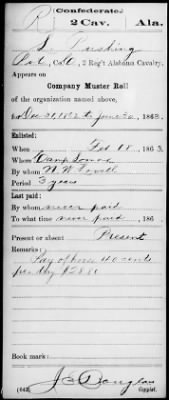 R
(Confederate.)
2 Cav. Ala.
L. Rushing
Pvt, Co. C, 2 Reg't Alabama Cavalry.
Appears on
Company Muster Roll
of the organization named above,
for Dec 31, 1862 to June 30, 1863.
Enlisted:
When Feb 18, 1863.
Where Camp
By whom W. W.
Period 3 years
Last paid:
By whom never paid
To what time never paid, 186 .
Present or absent Present
Remarks:
Pay of horse 40 cents
per day $
Book mark:
J. Douglas
(642) Copyist.